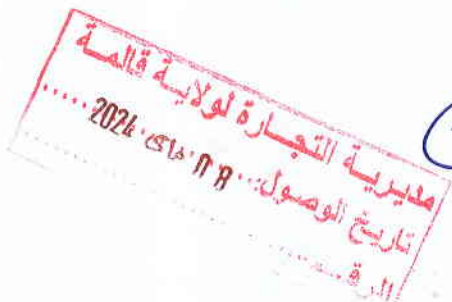 مديرية التجارة لولاية قالمة
تاريخ الوصول: 08 ماي 2024
الرقم